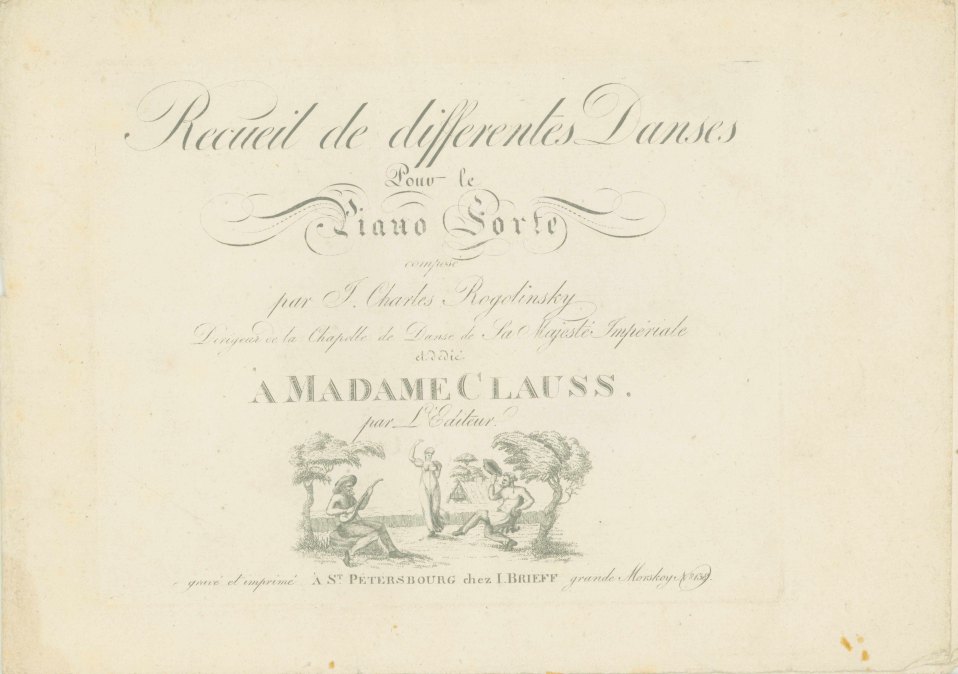 Recueil de differentes Danses
Pour le
Piano Forte
composé
par J. Charles Rogolinsky
Dirigeur de la Chapelle de Danse de Sa Majesté Impériale
et dedié
A MADAME CLAUSS.
par L'Editeur.
gravé et imprimé À ST. PÉTERSBOURG chez I. BRIEFF grande Morskoy